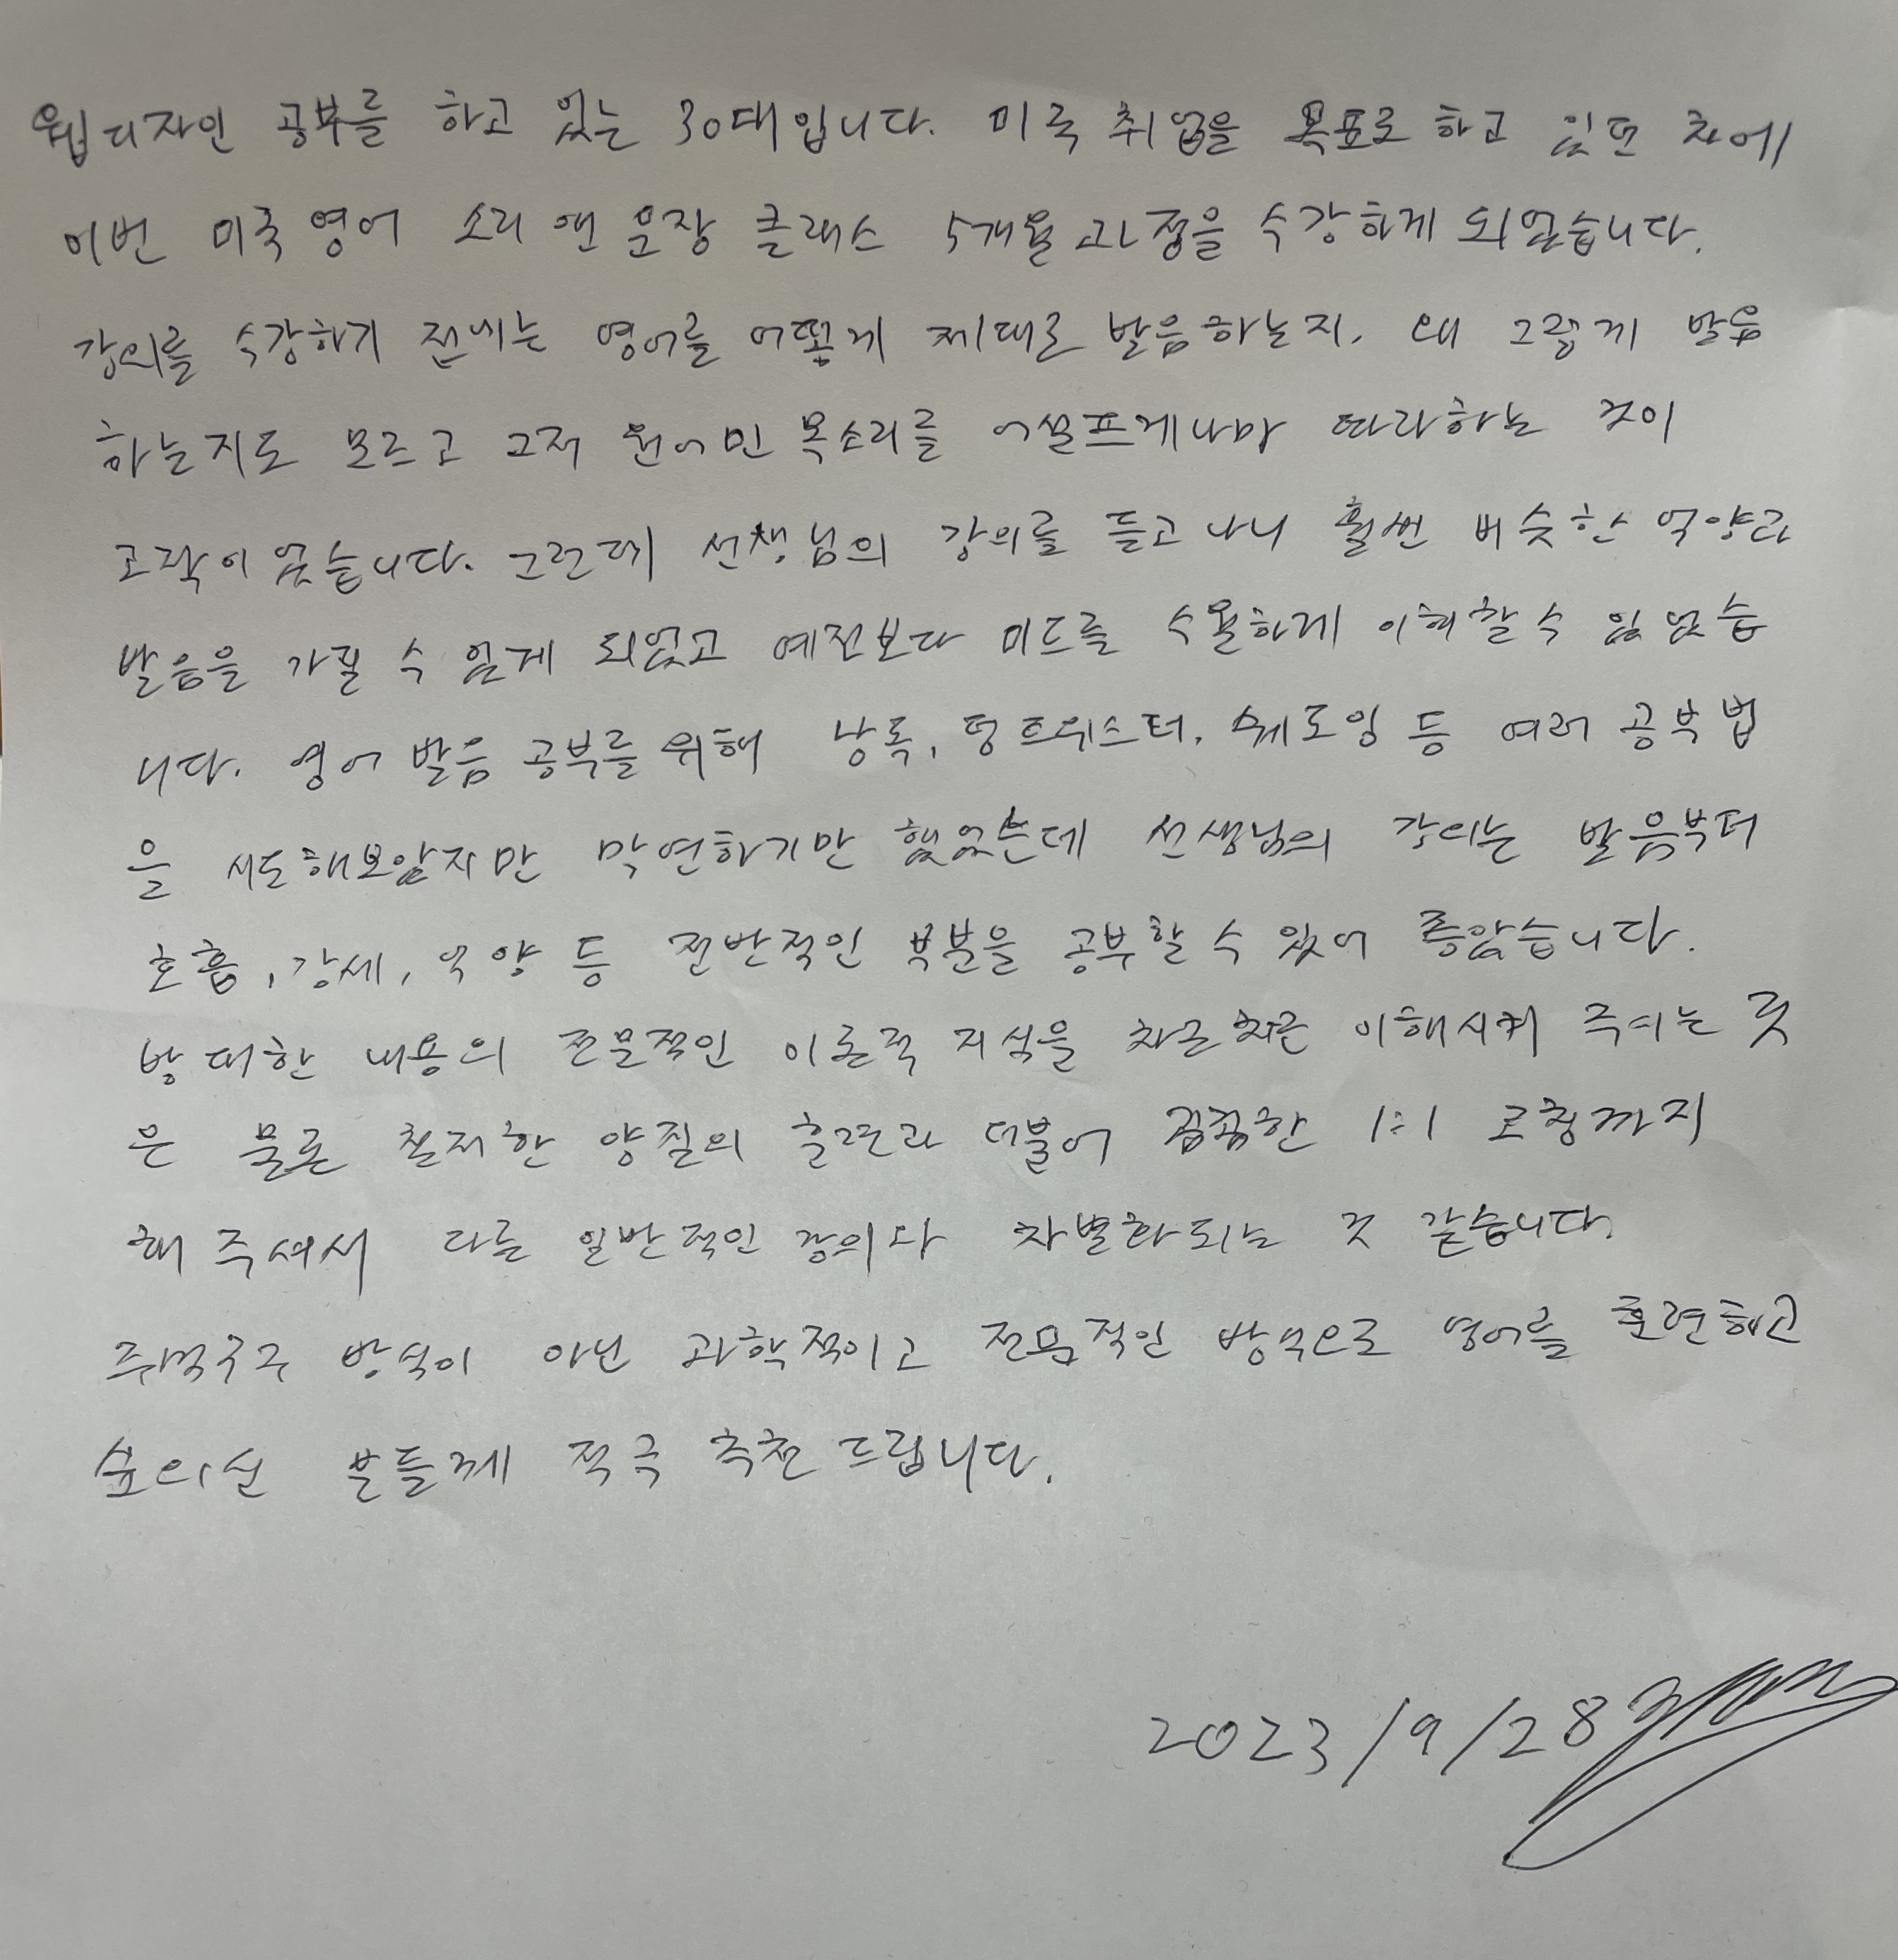 웹디자인 공부를 하고 있는 30대입니다. 미국 취업을 목표로 하고 있던 차에
이번 미국영어 소리앤 문장 클래스 5개월 과정을 수강하게 되었습니다.
강의를 수강하기 전에는 영어를 어떻게 제대로 발음하는지, 왜 그렇게 발음
하는지도 모르고 그저 원어민 목소리를 어설프게나마 따라하는 것이
고작이었습니다. 그런데 선생님의 강의를 듣고나니 훨씬 비슷한 억양과
발음을 가질 수 있게 되었고 예전보다 미드를 수월하게 이해할 수 있었습
니다. 영어 발음 공부를 위해 낭독, 텅트위스터, 쉐도잉 등 여러 공부법
을 시도해보았지만 막연하기만 했었는데 선생님의 강의는 발음부터
호흡, 강세, 억양 등 전반적인 부분을 공부할 수 있어 좋았습니다.
방대한 내용의 전문적인 이론적 지식을 차근차근 이해시켜 주시는 것
은 물론 철저한 양질의 훈련과 더불어 꼼꼼한 1:1 코칭까지
해 주셔서 다른 일반적인 강의와 차별화되는 것 같습니다.
주먹구구 방식이 아닌 과학적이고 전문적인 방식으로 영어를 훈련하고
싶으신 분들께 적극 추천 드립니다.
2023/9/28